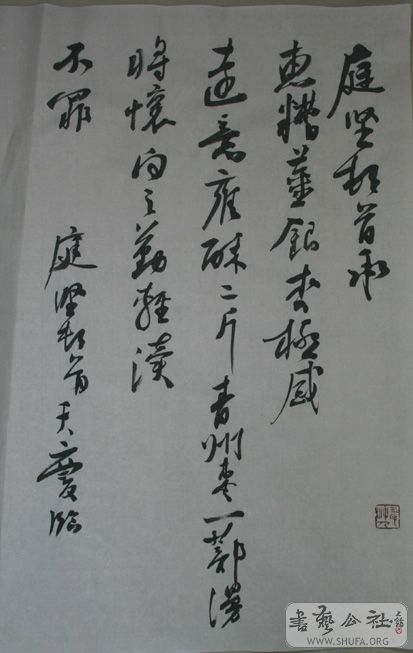 庭堅頓首承
惠糟薑銀杏極感
遠意雍酥二斤青州棗一蔀漫
將懷向之勤輕瀆
不罪 庭堅頓首天慶臨
書藝公社
WWW.SHUFA.ORG